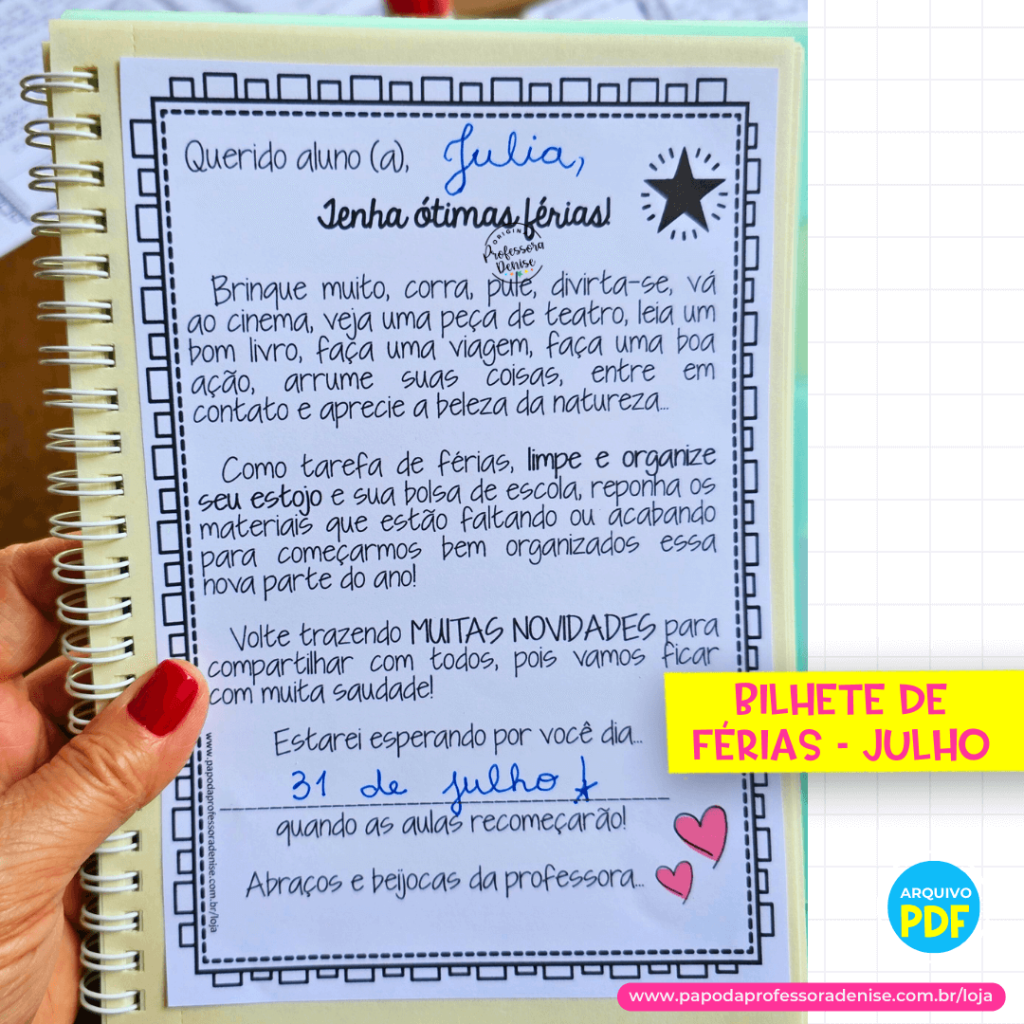 Querido aluno (a), Julia,
Tenha ótimas férias!
ORIGINAL
Professora
Denise
Brinque muito, corra, pule, divirta-se, vá
ao cinema, veja uma peça de teatro, leia um
bom livro, faça uma viagem, faça uma boa
ação, arrume suas coisas, entre em
contato e aprecie a beleza da natureza...
Como tarefa de férias, limpe e organize
seu estojo e sua bolsa de escola, reponha os
materiais que estão faltando ou acabando
para começarmos bem organizados essa
nova parte do ano!
Volte trazendo MUITAS NOVIDADES para
compartilhar com todos, pois vamos ficar
com muita saudade!
Estarei esperando por você dia...
31 de julho!
quando as aulas recomeçarão!
Abraços e beijocas da professora...
www.papodaprofessoradenise.com.br/loja
BILHETE DE
FÉRIAS - JULHO
ARQUIVO
PDF
www.papodaprofessoradenise.com.br/loja